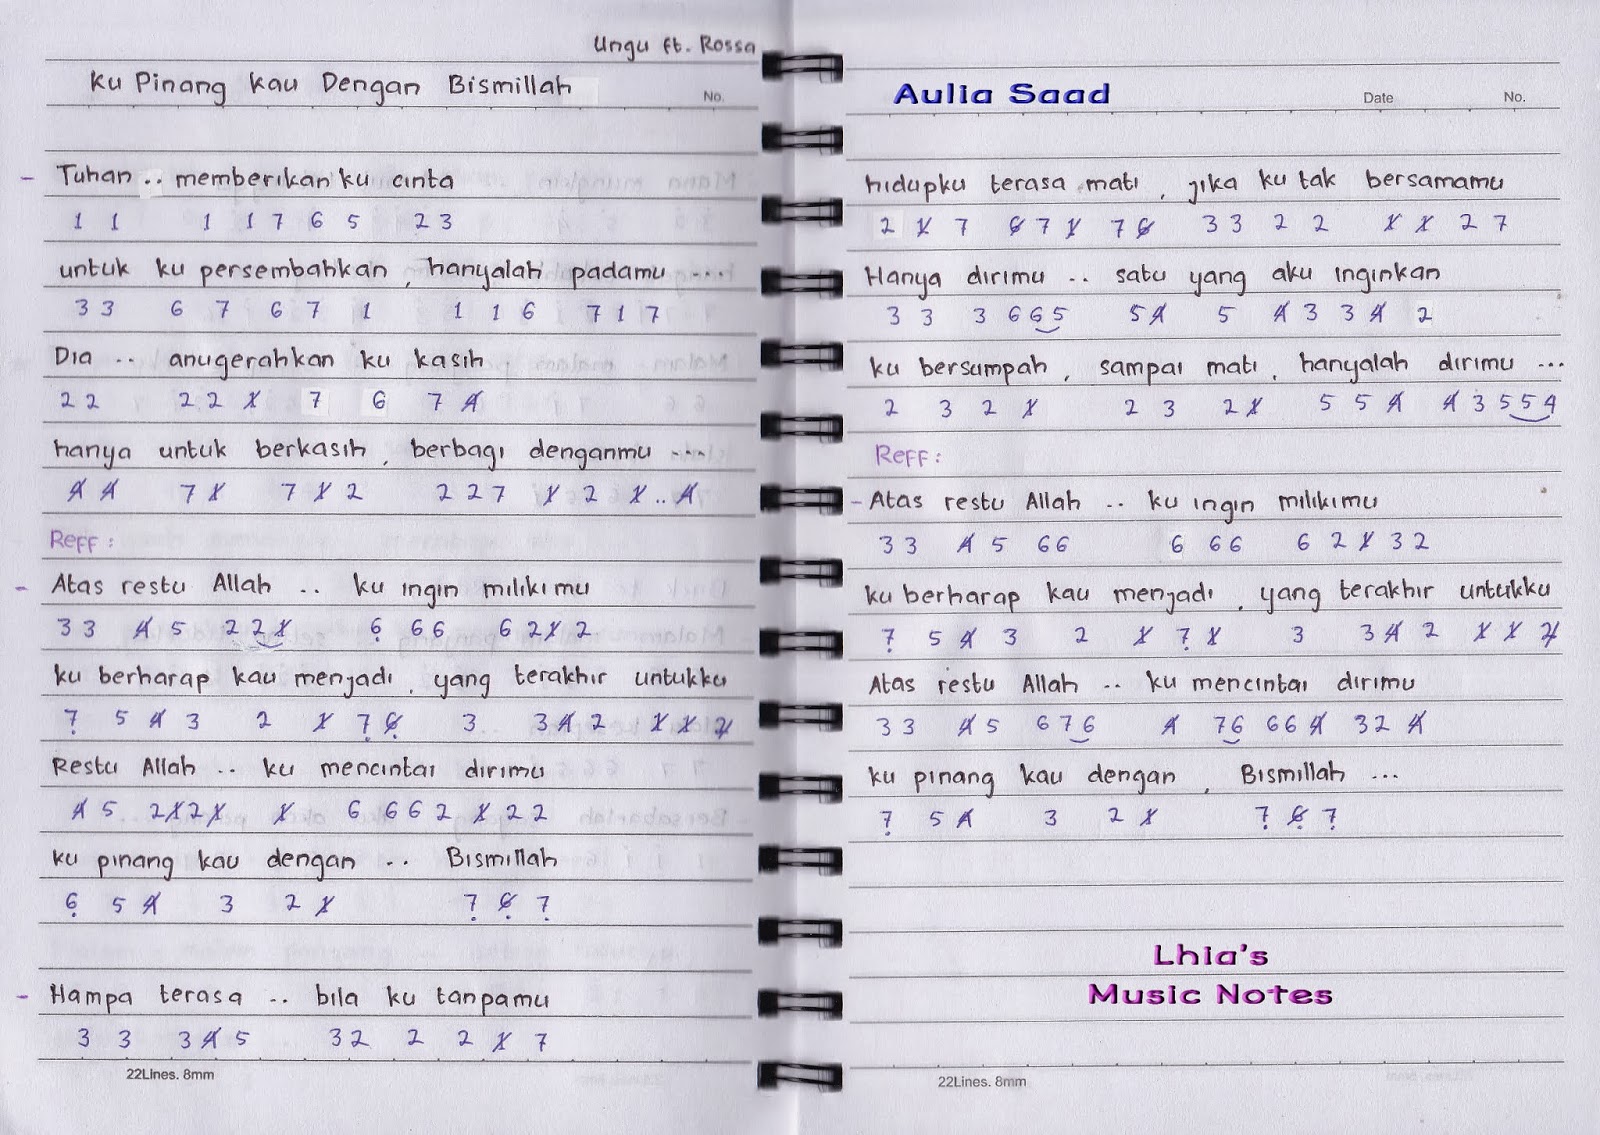 Ungu ft. Rossa
Ku Pinang Kau Dengan Bismillah
No.
- Tuhan .. memberikan ku cinta
1 1 1 1 7 6 5 2 3
untuk ku persembahkan, hanyalah padamu ....
3 3 6 7 6 7 1 1 1 6 7 1 7
Dia .. anugerahkan ku kasih
2 2 2 2 1 7 6 7 4
hanya untuk berkasih, berbagi denganmu ....
4 4 7 1 7 1 2 2 2 7 1 2 1 .. 4
Reff :
- Atas restu Allah .. ku ingin milikimu
3 3 4 5 2 2 1 6 6 6 6 2 1 2
ku berharap kau menjadi, yang terakhir untukku
7 5 4 3 2 1 7 6 3 3 4 2 1 1 2
Restu Allah .. ku mencintai dirimu
4 5 2 1 2 1 1 6 6 6 2 1 2 2
ku pinang kau dengan .. Bismillah
6 5 4 3 2 1 7 6 7
- Hampa terasa .. bila ku tanpamu
3 3 3 4 5 3 2 2 2 1 7
22Lines. 8mm
Aulia Saad
Date No.
hidupku terasa mati, jika ku tak bersamamu
2 1 7 6 7 1 7 6 3 3 2 2 1 1 2 7
Hanya dirimu .. satu yang aku inginkan
3 3 3 6 6 5 5 4 5 4 3 3 4 2
ku bersumpah, sampai mati, hanyalah dirimu ...
2 3 2 1 2 3 2 1 5 5 4 4 3 5 5 4
Reff :
- Atas restu Allah .. ku ingin milikimu
3 3 4 5 6 6 6 6 6 6 2 1 3 2
ku berharap kau menjadi, yang terakhir untukku
7 5 4 3 2 1 7 1 3 3 4 2 1 1 2
Atas restu Allah .. ku mencintai dirimu
3 3 4 5 6 7 6 4 7 6 6 6 4 3 2 4
ku pinang kau dengan, Bismillah ...
7 5 4 3 2 1 7 6 7
Lhia's
Music Notes
22Lines. 8mm